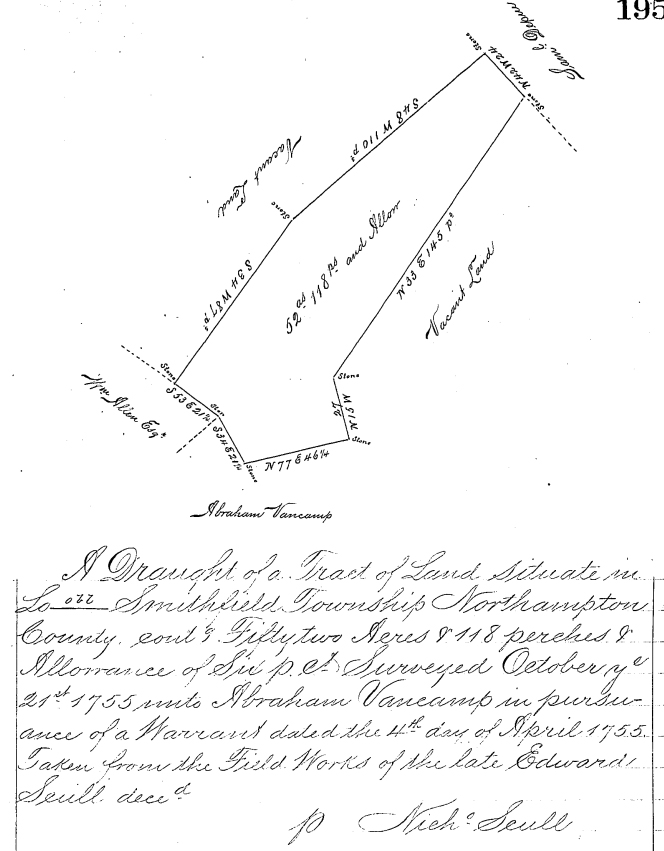 195
Sam:l Depui
Stone
N 42 W 24
Stone
S 48 W 110 ps
Vacant Land
Stone
52 as 118 ps and Allow
S 34 W 87 ps
N 33 E 145 ps
Vacant Land
Stone
Stone
Wm Allen Esqr
S 53 E 21¼
Stone
S 34 E 21¼
N 15 W 27
Stone
Stone
N 77 E 46¼
Abraham Vancamp
A Draught of a Tract of Land Situate in
Lo Smithfield Township Northampton
County. cont g Fifty two Acres & 118 perches &
Allowance of Six p. Ct Surveyed October ye
21st 1755 unto Abraham Vancamp in pursu-
ance of a Warrant dated the 4th day of April 1755.
Taken from the Field Works of the late Edward
Scull decd
p Nichs Scull